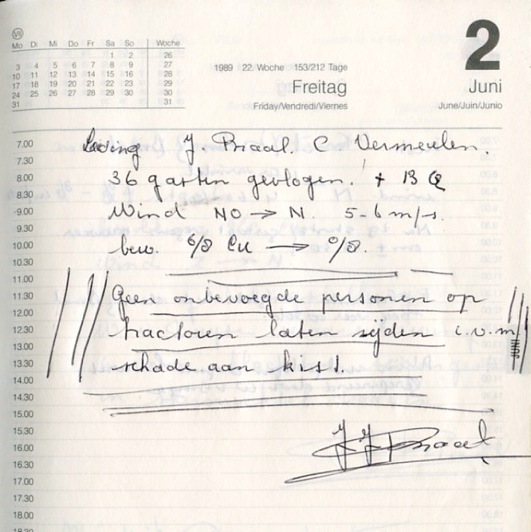 VII
Mo Di Mi Do Fr Sa So Woche
1 2 26
3 4 5 6 7 8 9 27
10 11 12 13 14 15 16 28
17 18 19 20 21 22 23 29
24 25 26 27 28 29 30 30
31 31
1989 22. Woche 153/212 Tage
Freitag
Friday/Vendredi/Viernes
2
Juni
June/Juin/Junio
7.00
Leiding J Braal. C Vermeulen.
7.30
8.00
36 gasten gevlogen. + 13
8.30
9.00
Wind NO → N. 5-6 m/s.
9.30
10.00
bew. 6/8 Cu → 0/8.
10.30
11.00
11.30
Geen onbevoegde personen op
12.00
12.30
tractoren laten rijden i.v.m
13.00
13.30
schade aan kist.
14.00
14.30
15.00
15.30
16.00
J Braal
16.30
17.00
17.30
18.00
18.30